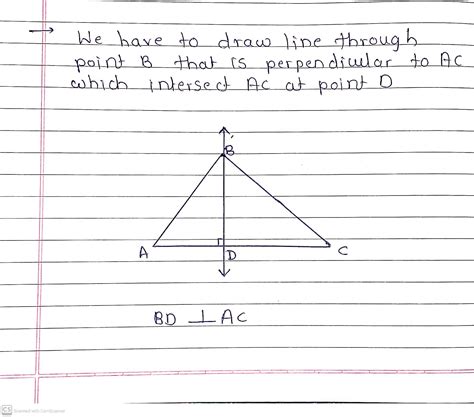 → We have to draw line through
point B that is perpendiculur to AC
which intersect AC at point D
B
A
D
C
BD ⊥ AC
CS Scanned with CamScanner